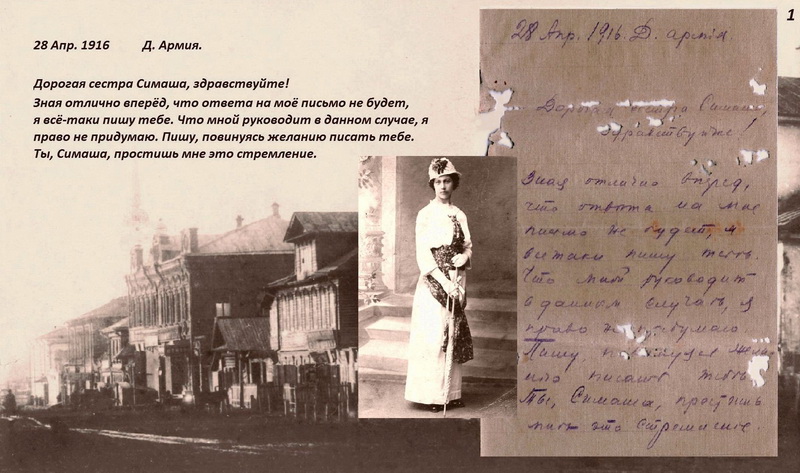 1
28 Апр. 1916 Д. Армия.
Дорогая сестра Симаша, здравствуйте!
Зная отлично вперёд, что ответа на моё письмо не будет,
я всё-таки пишу тебе. Что мной руководит в данном случае, я
право не придумаю. Пишу, повинуясь желанию писать тебе.
Ты, Симаша, простишь мне это стремление.
28 Апр. 1916. Д. армія
Дорогая сестра Симаша,
здравствуйте!
Зная отлично вперед,
что ответа на мое
письмо не будет, я
всетаки пишу тебе.
Что мной руководит
в данном случае, я
право не придумаю.
Пишу, повинуясь жела
нію писать тебе.
Ты, Симаша, простишь
мне это стремление.